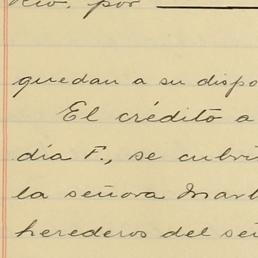 Rio, por
quedan a su dispo
El crédito a
día F., se cubri
la señora Mart
herederos del señ